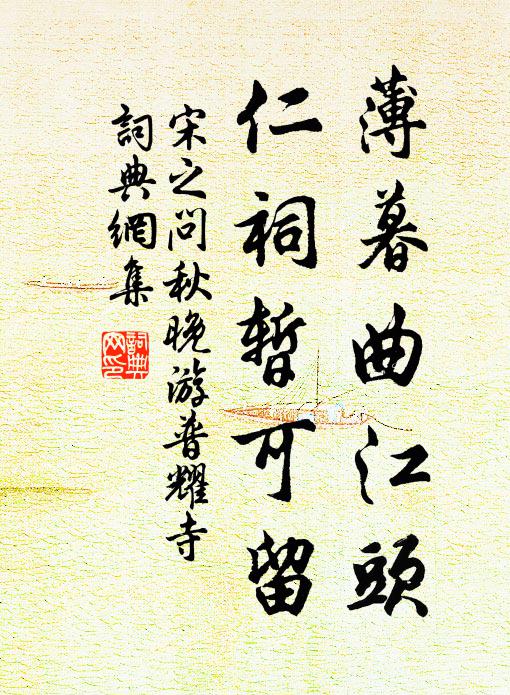 薄暮曲江頭
仁祠暫可留
宋之问秋晚游普耀寺
詞典網集
詞典
网印